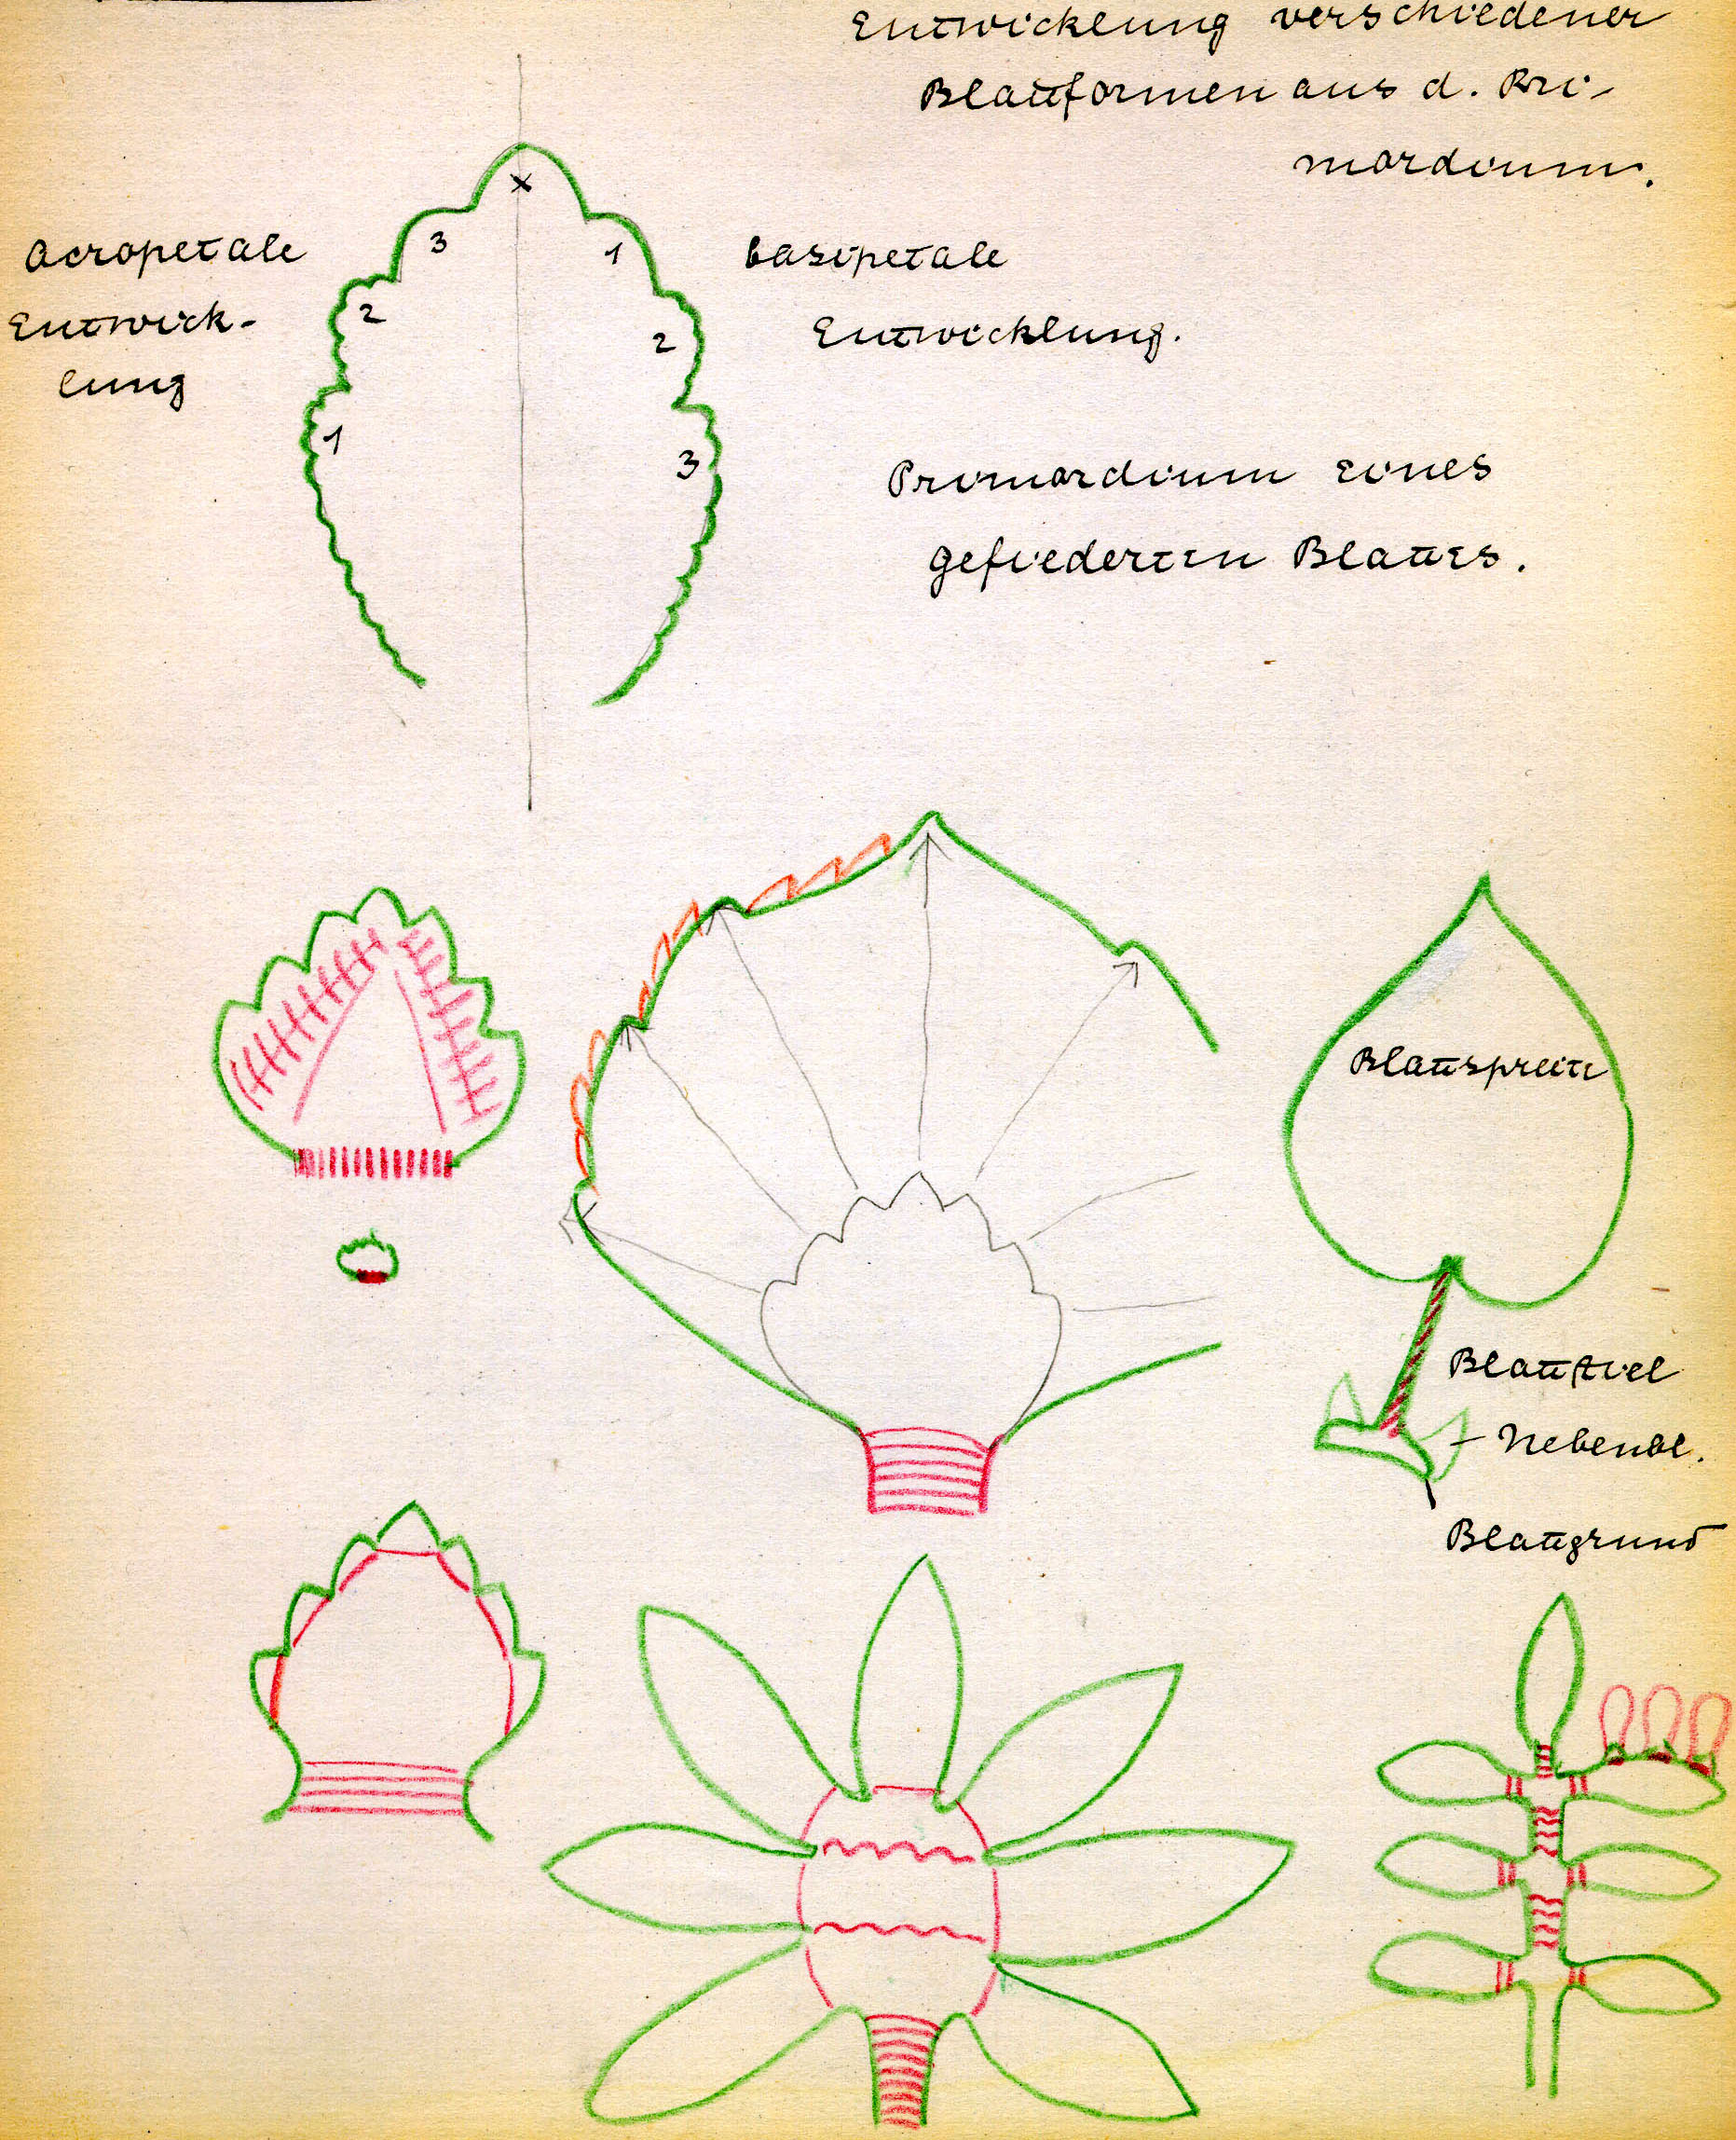 Entwicklung verschiedener
Blattformen aus d. Pri-
mordium.
Acropetale
Entwick-
lung
basipetale
Entwicklung.
x
3
1
2
2
1
3
Primordium eines
gefiederten Blattes.
Blattspreite
Blattstiel
- Nebenbl.
Blattgrund